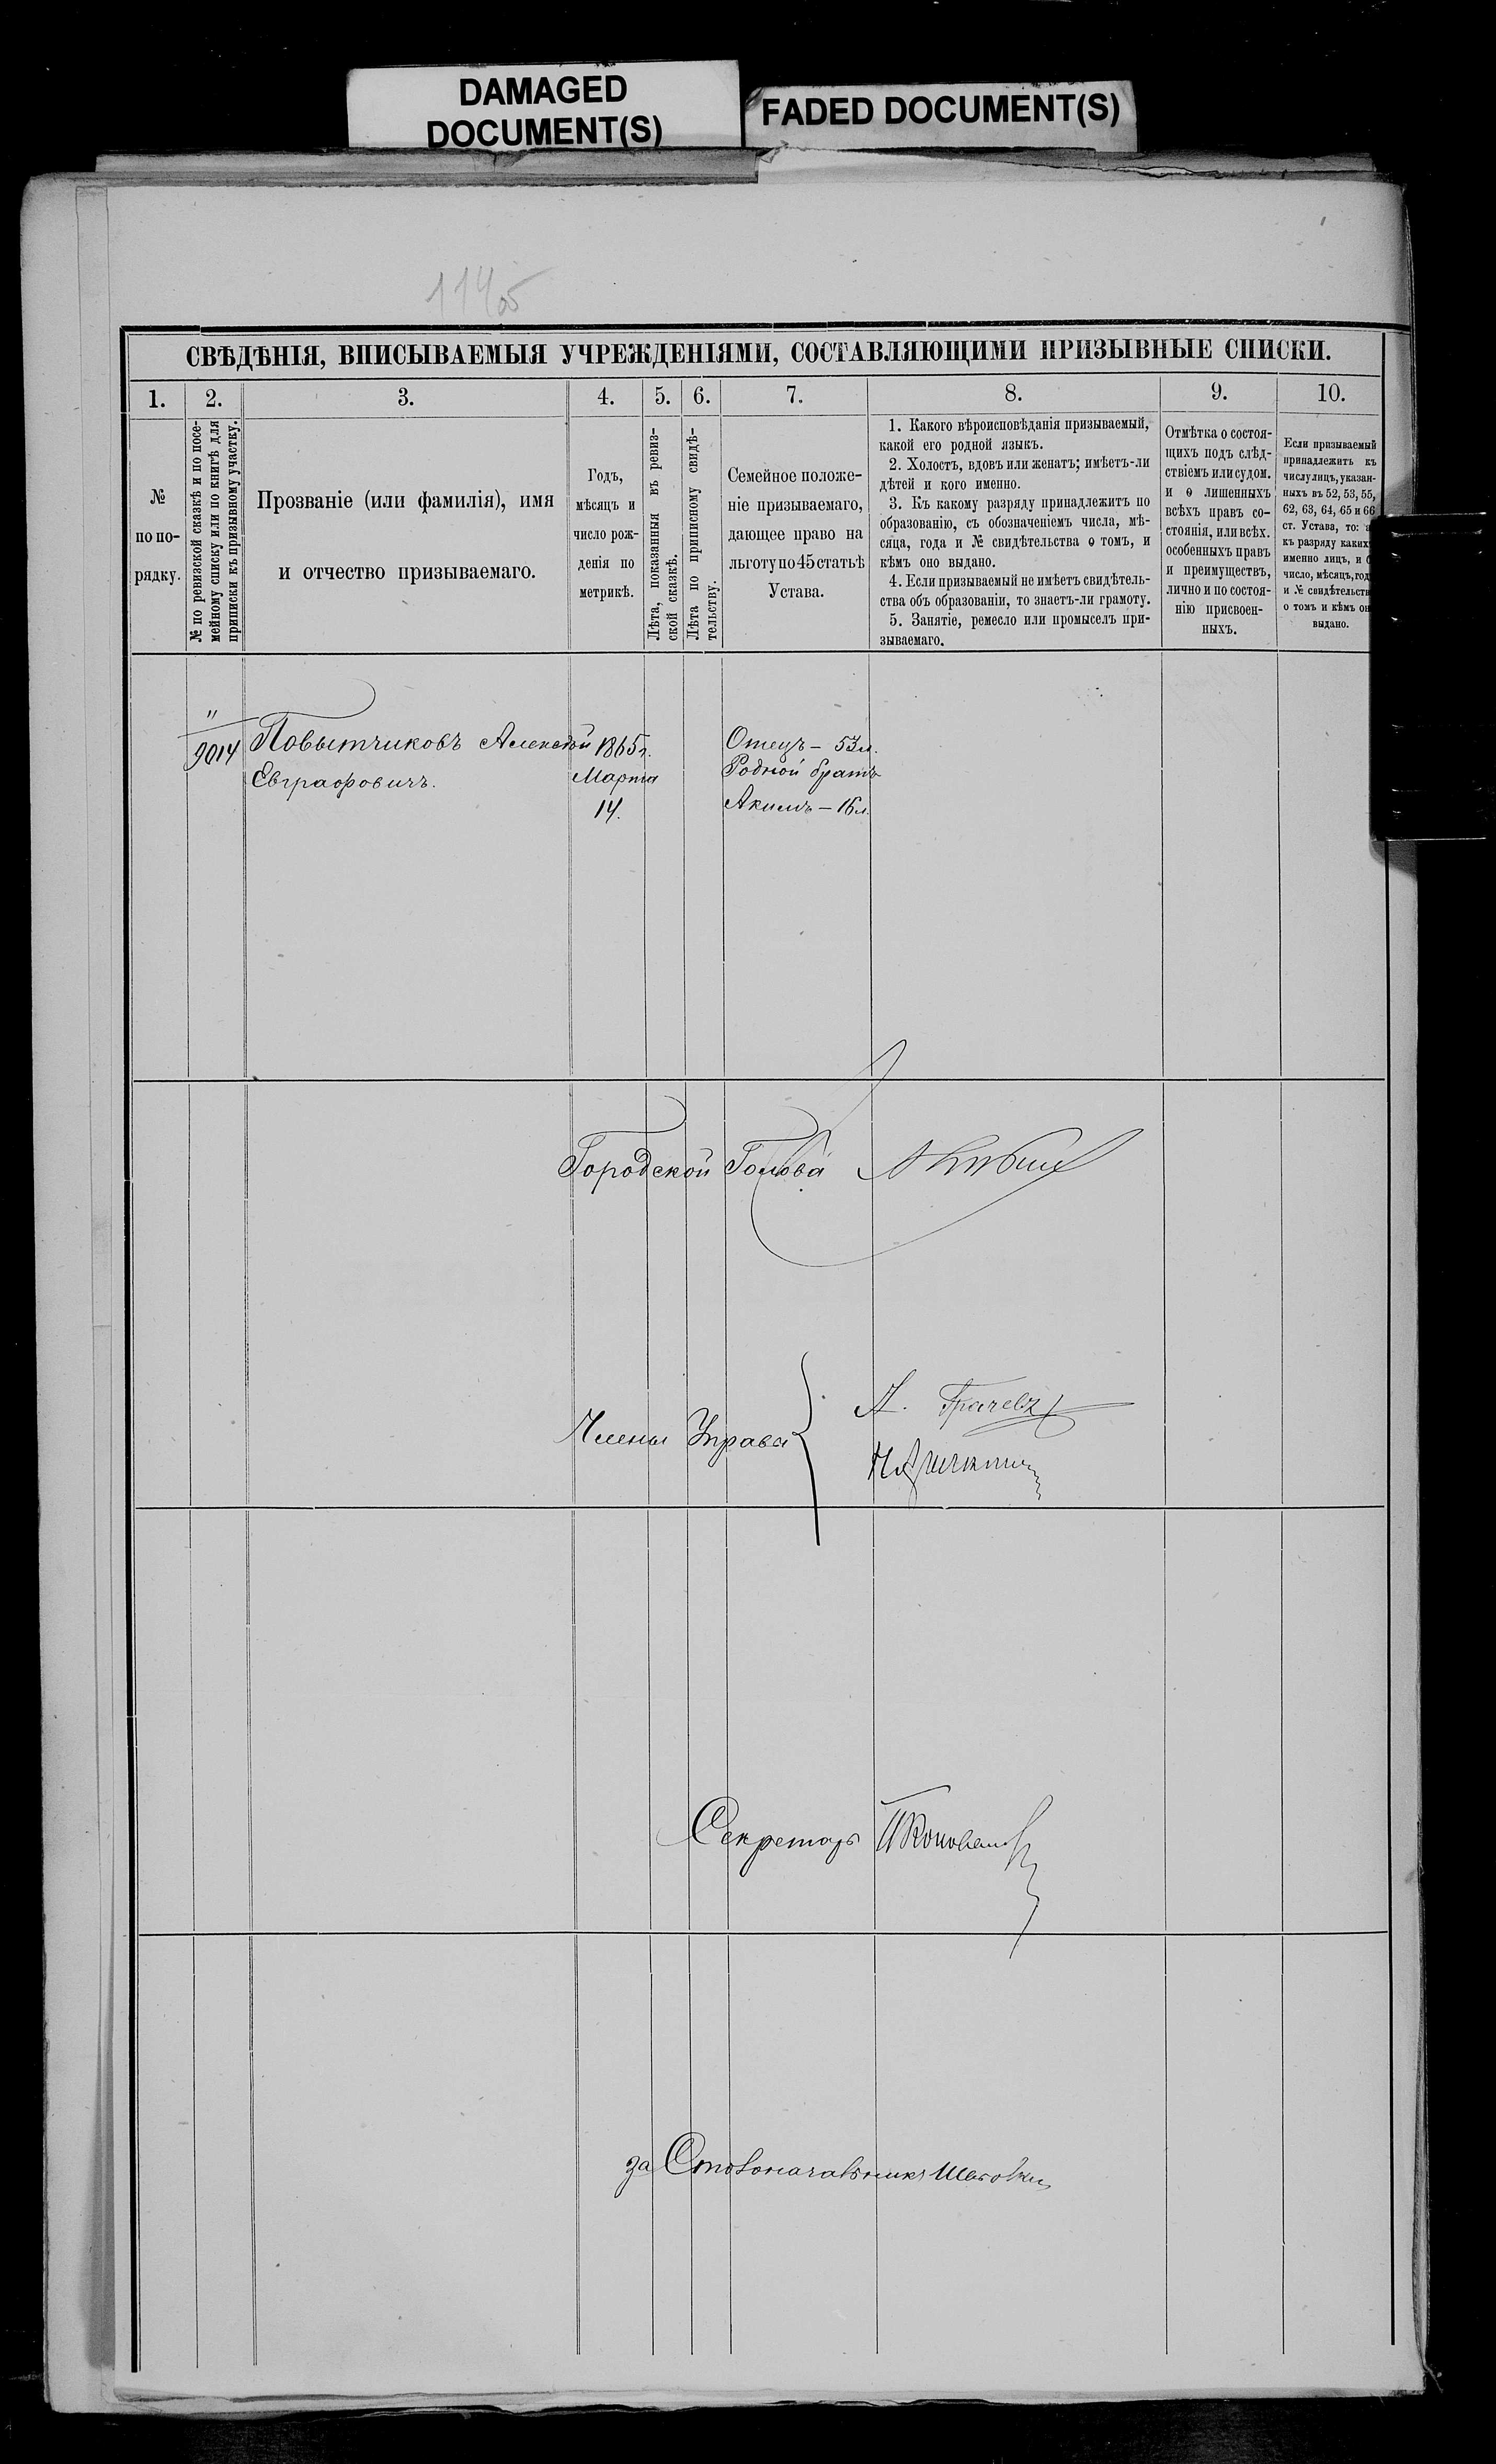 DAMAGED
DOCUMENT(S)
FADED DOCUMENT(S)
СВѢДѢНІЯ, ВПИСЫВАЕМЫЯ УЧРЕЖДЕНІЯМИ, СОСТАВЛЯЮЩИМИ ПРИЗЫВНЫЕ СПИСКИ.
1. 2. 3. 4. 5. 6. 7. 8. 9. 10.
№
по по-
рядку.
№ по ревизской сказкѣ и по посе-
мейному списку или по книгѣ для
приписки къ призывному участку.
Прозваніе (или фамилія), имя
и отчество призываемаго.
Годъ,
мѣсяцъ и
число рож-
денія по
метрикѣ.
Лѣта, показанныя въ ревиз-
ской сказкѣ.
Лѣта по приписному свидѣ-
тельству.
Семейное положе-
ніе призываемаго,
дающее право на
льготу по 45 статьѣ
Устава.
1. Какого вѣроисповѣданія призываемый,
какой его родной языкъ.
2. Холостъ, вдовъ или женатъ; имѣетъ-ли
дѣтей и кого именно.
3. Къ какому разряду принадлежитъ по
образованію, съ обозначеніемъ числа, мѣ-
сяца, года и № свидѣтельства о томъ, и
кѣмъ оно выдано.
4. Если призываемый не имѣетъ свидѣтель-
ства объ образованіи, то знаетъ-ли грамоту.
5. Занятіе, ремесло или промыселъ при-
зываемаго.
Отмѣтка о состоя-
щихъ подъ слѣд-
ствіемъ или судом.
и о лишенныхъ
всѣхъ правъ со-
стоянія, или всѣх.
особенныхъ правъ
и преимуществъ,
лично и по состоя-
нію присвоен-
ныхъ.
Если призываемый
принадлежитъ къ
числу лицъ, указан-
ныхъ въ 52, 53, 55,
62, 63, 64, 65 и 66
ст. Устава, то:
къ разряду каких
именно лицъ, и
число, мѣсяцъ, год
и № свидѣтельств
о томъ и кѣмъ он
выдано.
"
9014
Повытчиковъ Алексѣй
Евграфовичъ.
1865 г.
Марта
14.
Отецъ – 53 л.
Родной братъ
Акимъ – 16 л.
Городской Голова
Члены Управы
А. Грачевъ
Секретарь П Коновалов
за Столоначальника